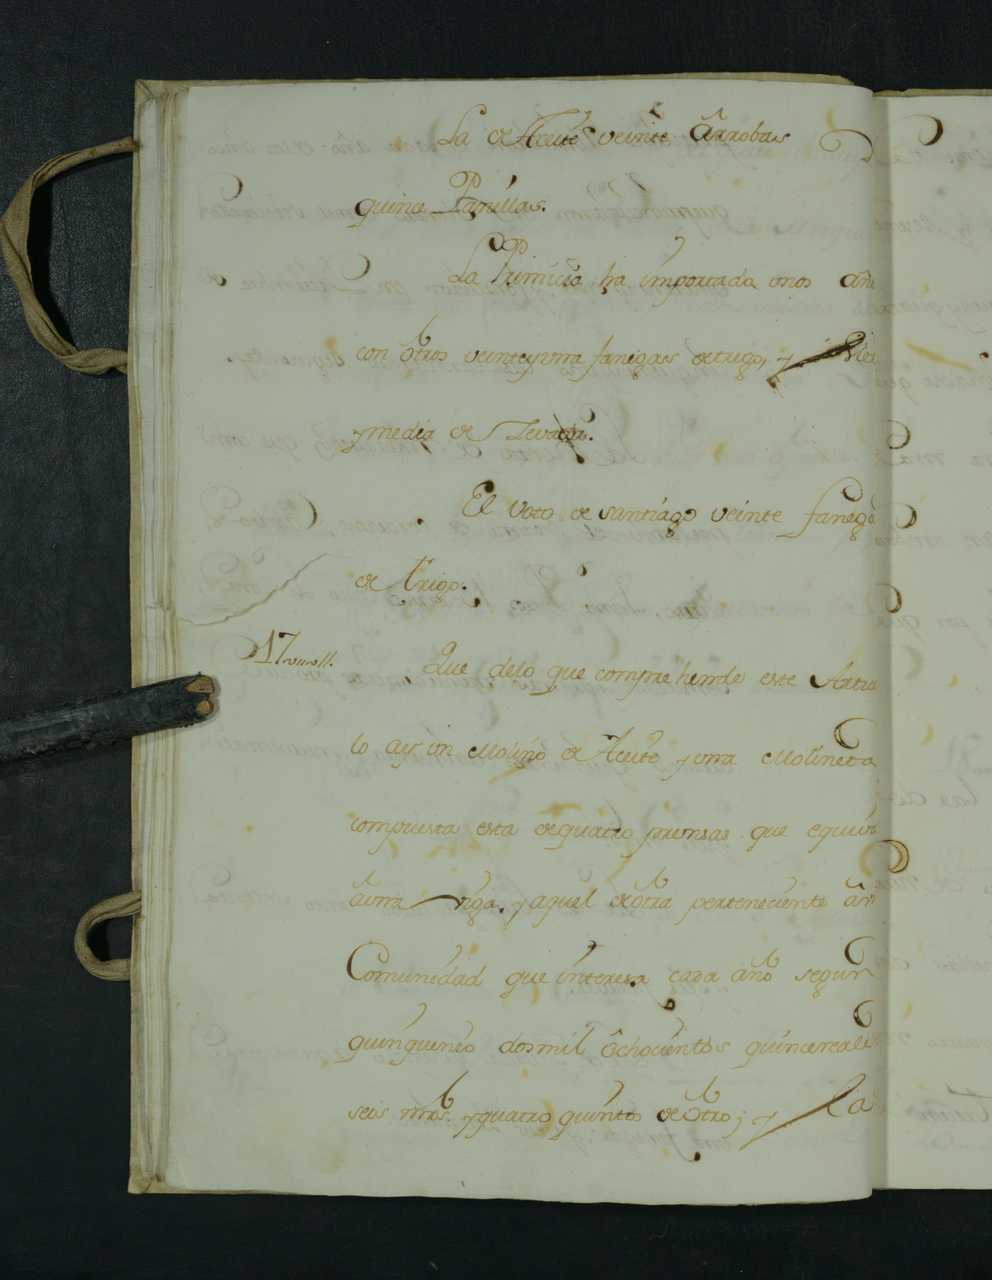 La de Aceite veinte Arrobas
quince Panillas.
La Primicia ha importada unos añ
con otros veinte y una fanegas de trigo, y
y media de Zevada.
El Voto de Santiago veinte faneg
de trigo.
17 Que de lo que comprehende este Artic
lo ay un Molino de Aceite y una Molineta
compuesta esta de quatro prensas que equiv
a una viga, y aquel de otra perteneciente a
Comunidad que interesa cada año segun
quinquenio dos mil ochocientos quince reale
seis mrs. y quatro quintos de otro; y la